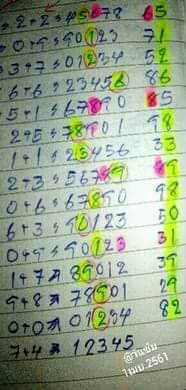 2+2=45678 65
0+9=90123 71
3+7=01234 52
6+6=23456 86
8+8=67890 85
2+5=78901 98
1+1=23456 33
2+3=56789 89
0+6=67890 98
6+3=90123 50
0+9=90123 31
1+7=89012 39
9+8=78901 29
0+0=01234 82
7+4=12345
1 เมย. 2561